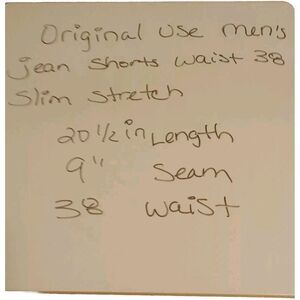 Original Use Men's
jean Shorts Waist 38
Slim Stretch
20 1/2 in Length
9" Seam
38 Waist